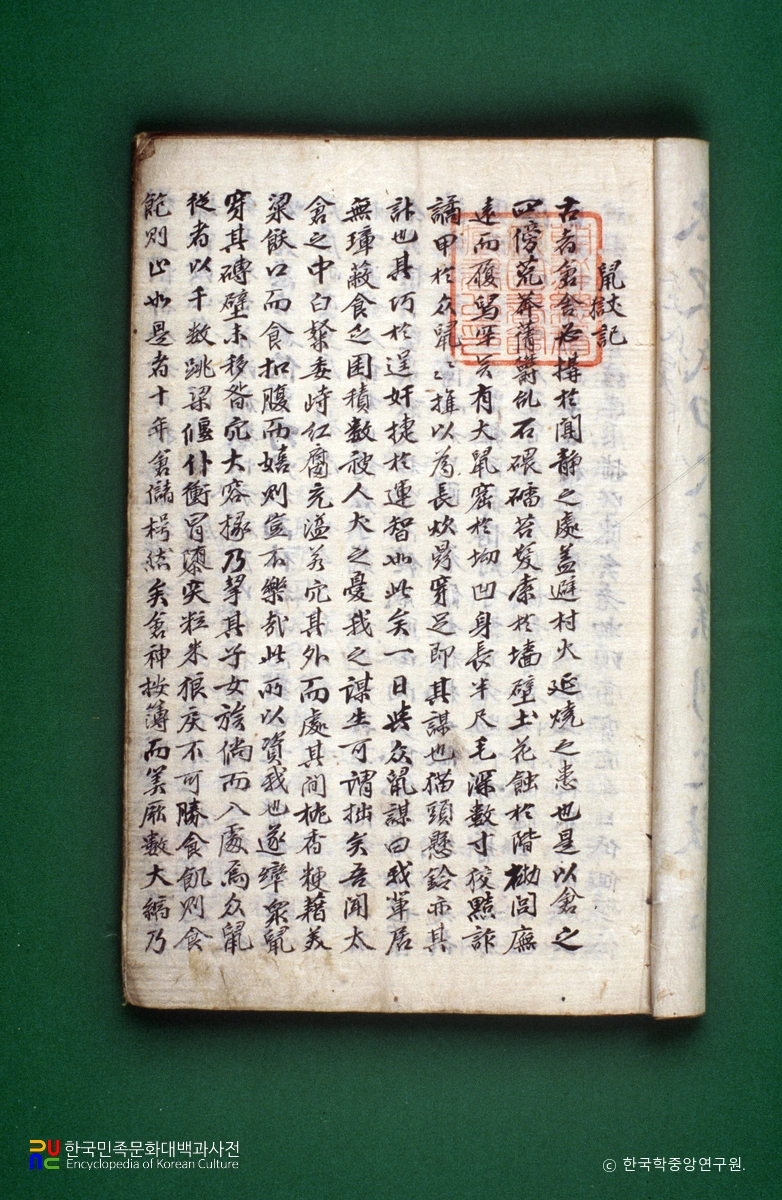 鼠獄記
古者倉舍必搆於閒静之處盖避村火延燒之患也是以倉之
四傍荒莽薈蔚乱石磈礧苔髮索於墻壁土花蝕於階礎閭廡
遠而履舃罕焉有大鼠窟於坳凹身長半尺毛深数寸狡黠詐
譎甲於众鼠〻推以為長炊鼎穿足即其謀也猫頭懸鈴亦其
計也其巧於逞奸捷於運智如此矣一日与众鼠謀曰我軰居
無障蔽食乏囷積数被人犬之憂我之謀生可謂拙矣吾聞太
倉之中白粲委峙红腐充溢若宂其外而處其间枕香粳藉美
粱飫口而食扣腹而嬉則豈不樂哉此所以資我也遂率衆鼠
穿其磚壁未移晷宂大容椽乃挈其子女旅徜而入處焉众鼠
從者以千数跳梁偃仆衝冒隳突粒米狼戾不可勝食飢則食
飽則止如是者十年倉儲枵然矣倉神按簿而筭厥数大縮乃
한국민족문화대백과사전
Encyclopedia of Korean Culture
ⓒ 한국학중앙연구원.